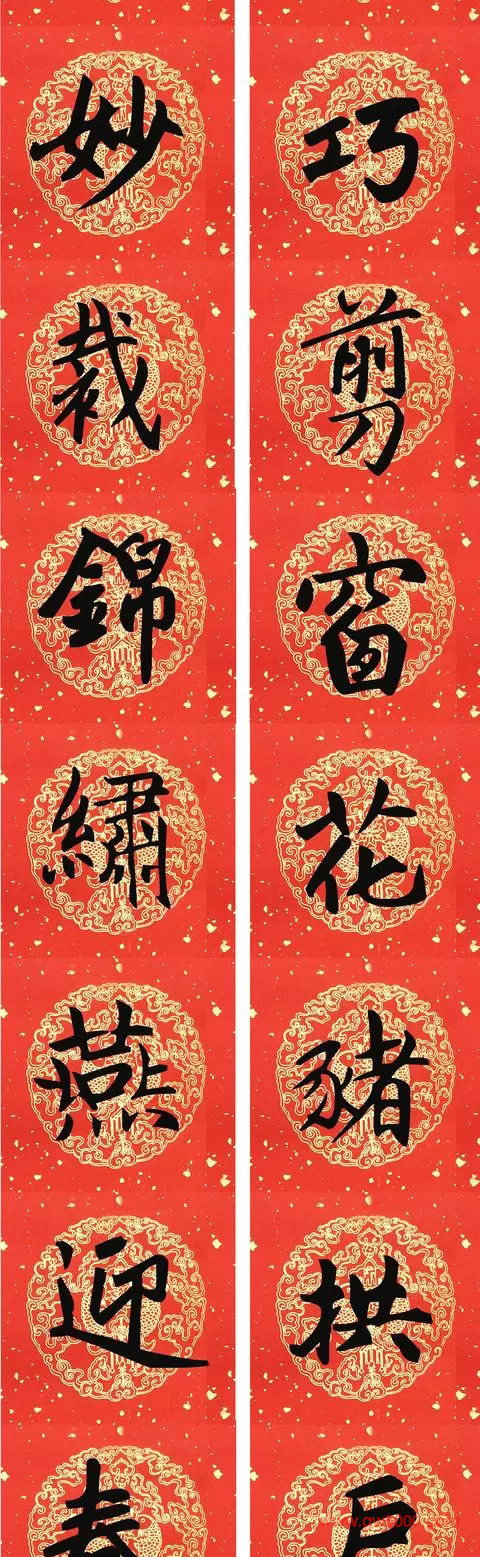 巧剪窗花豬拱戶
妙裁錦繡燕迎春